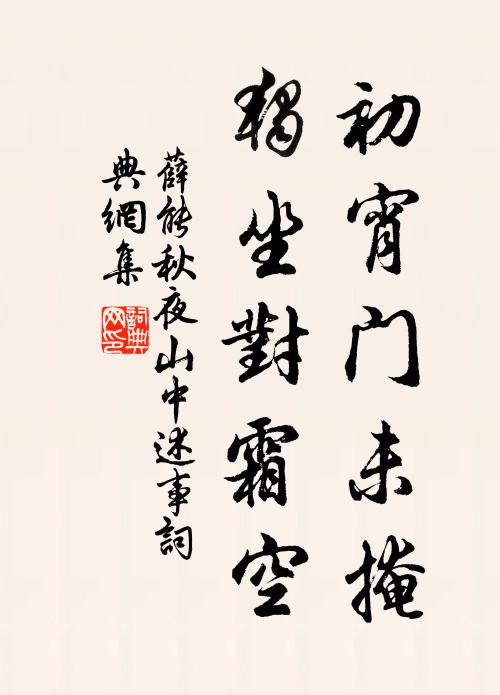 初宵門未掩
獨坐對霜空
薛能秋夜山中述事詞
典網集
詞典網印